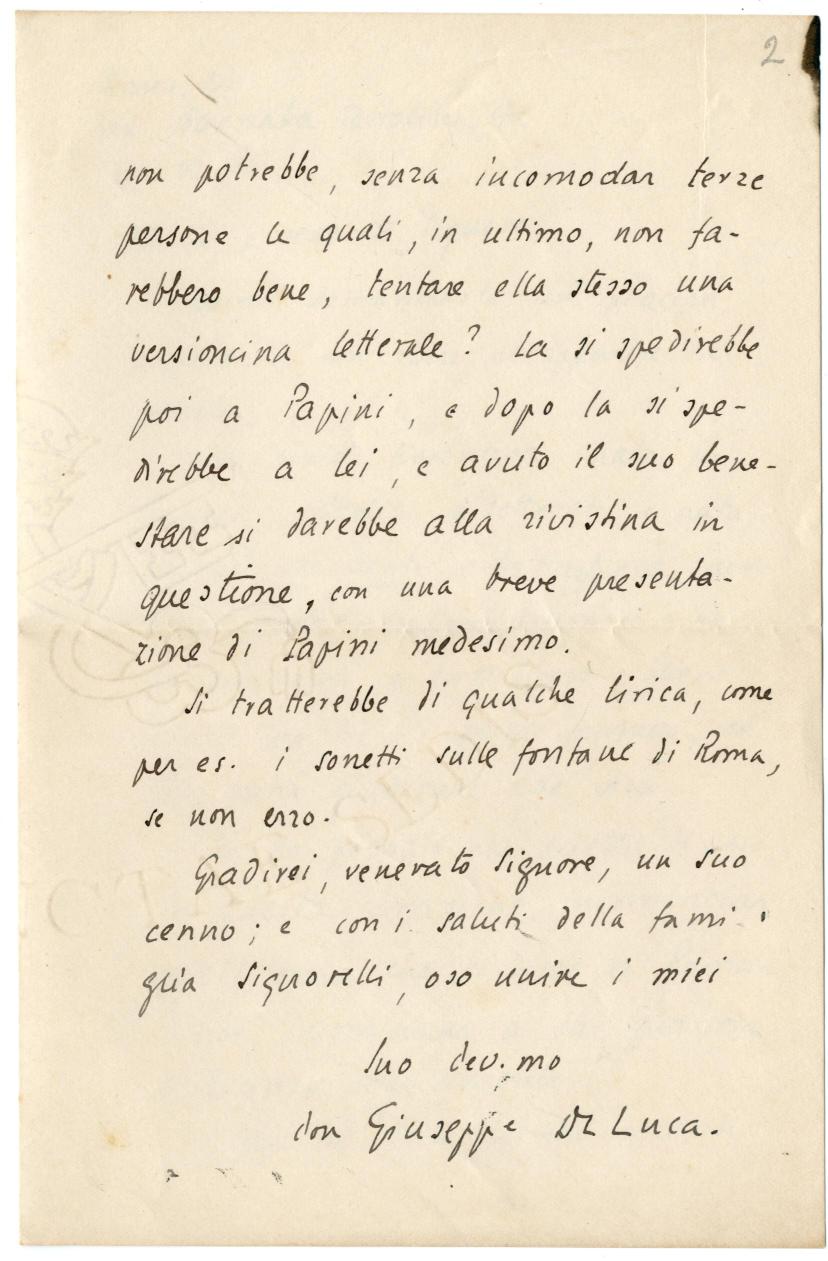 2
non potrebbe, senza incomodar terze
persone le quali, in ultimo, non fa-
rebbero bene, tentare ella stesso una
versioncina letterale? La si spedirebbe
poi a Papini, e dopo la si spe-
direbbe a lei, e avuto il suo bene-
stare si darebbe alla rivistina in
questione, con una breve presenta-
zione di Papini medesimo.
Si tratterebbe di qualche lirica, come
per es. i sonetti sulle fontane di Roma,
se non erro.
Gradirei, venerato Signore, un suo
cenno; e con i saluti della fami-
glia Signorelli, oso unire i miei
Suo dev.mo
don Giuseppe De Luca.